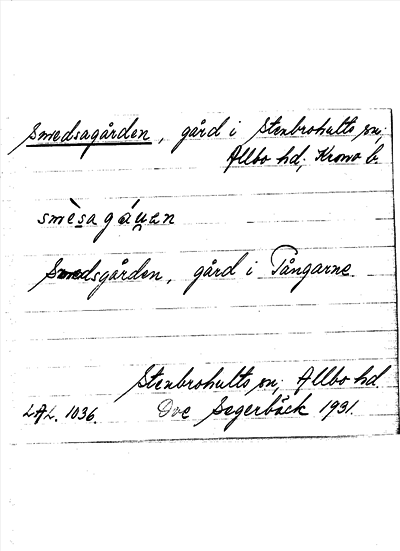 Smedsagården, gård i Stenbrohults sn;
Allbo hd; Krono b.
smèsa gáu̯ən
Smedsgården, gård i Tångarne.
Stenbrohults sn; Allbo hd
LAL. 1036. Ove Segerbäck 1931.